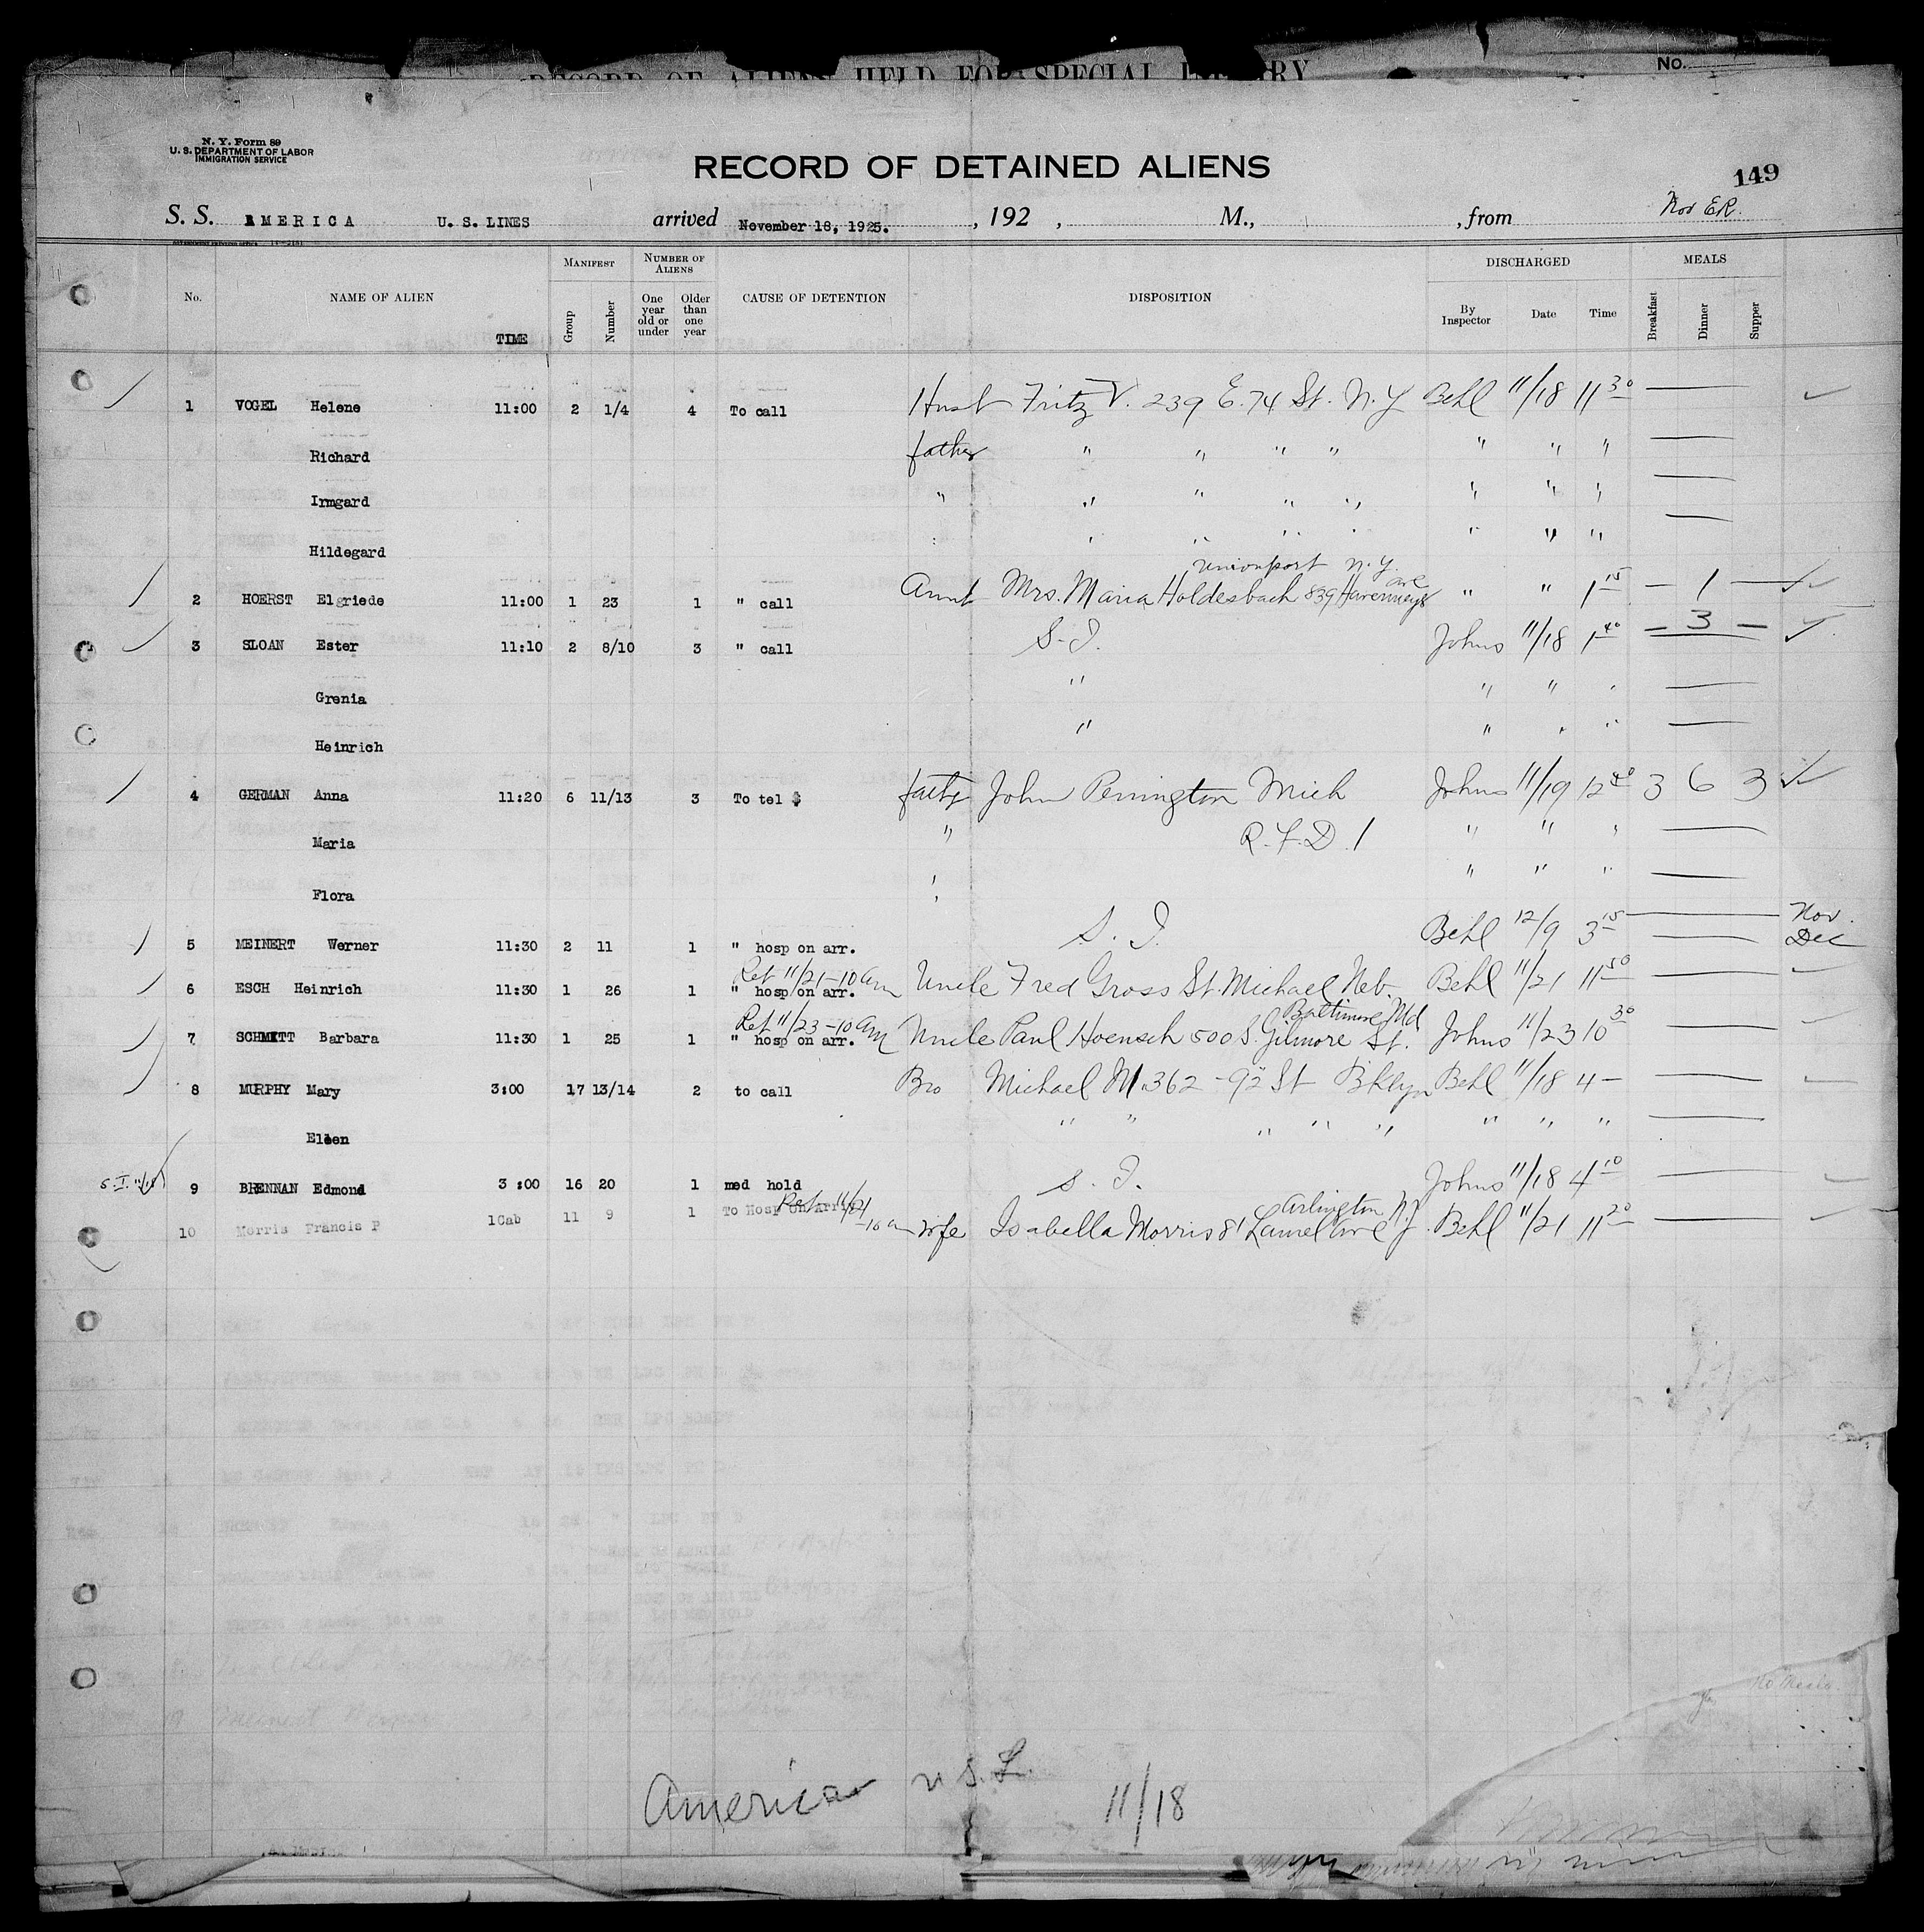 RECORD OF ALIENS HELD FOR SPECIAL INQUIRY
No.
N. Y. Form 89
U. S. DEPARTMENT OF LABOR
IMMIGRATION SERVICE
RECORD OF DETAINED ALIENS
149
S. S. AMERICA U. S. LINES arrived November 18, 1925. , 192 , M., , from Nov ER.
No. NAME OF ALIEN TIME MANIFEST Group Number NUMBER OF ALIENS One year old or under Older than one year CAUSE OF DETENTION DISPOSITION DISCHARGED By Inspector Date Time MEALS Breakfast Dinner Supper
1 VOGEL Helene 11:00 2 1/4 4 To call Husb Fritz V. 239 E. 74 St. N.Y Behl 11/18 11 30
Richard father " " " " " " "
Irmgard " " " " " " " "
Hildegard " " " " " " " "
Unionport N.Y.
2 HOERST Elgriede 11:00 1 23 1 " call Aunt Mrs. Maria Holdesbach 839 Havermeyer ave " " 1 15 – 1 –
3 SLOAN Ester 11:10 2 8/10 3 " call S. I. Johns 11/18 1 40 – 3 –
Grenia " " " "
Heinrich " " " "
4 GERMAN Anna 11:20 6 11/13 3 To tel $ father John Pennington Mich Johns 11/19 12 40 3 6 3
Maria " R.F.D. 1 " " "
Flora " " " "
5 MEINERT Werner 11:30 2 11 1 " hosp on arr. S. I. Behl 12/9 3 15 Nov. Dec
Ret 11/21 – 10 am
6 ESCH Heinrich 11:30 1 26 1 " hosp on arr. Uncle Fred Gross St. Michael Neb. Behl 11/21 11 50
Ret 11/23 – 10 am Baltimore Md
7 SCHMITT Barbara 11:30 1 25 1 " hosp on arr. Uncle Paul Hoensch 500 S. Gilmore St. Johns 11/23 10 30
8 MURPHY Mary 3:00 17 13/14 2 to call Bro Michael M. 362 - 92 St Bklyn Behl 11/18 4 –
Eleen " " " " " " " "
S.I. 11/18 9 BRENNAN Edmond 3:00 16 20 1 med hold S. I. Johns 11/18 4 10
Ret 11/21 – 10 am Arlington N.J.
10 Morris Francis P 1Cab 11 9 1 To Hosp on Arriv wife Isabella Morris 81 Laurel ave Behl 11/21 11 20
No Meals.
America U.S.L. 11/18